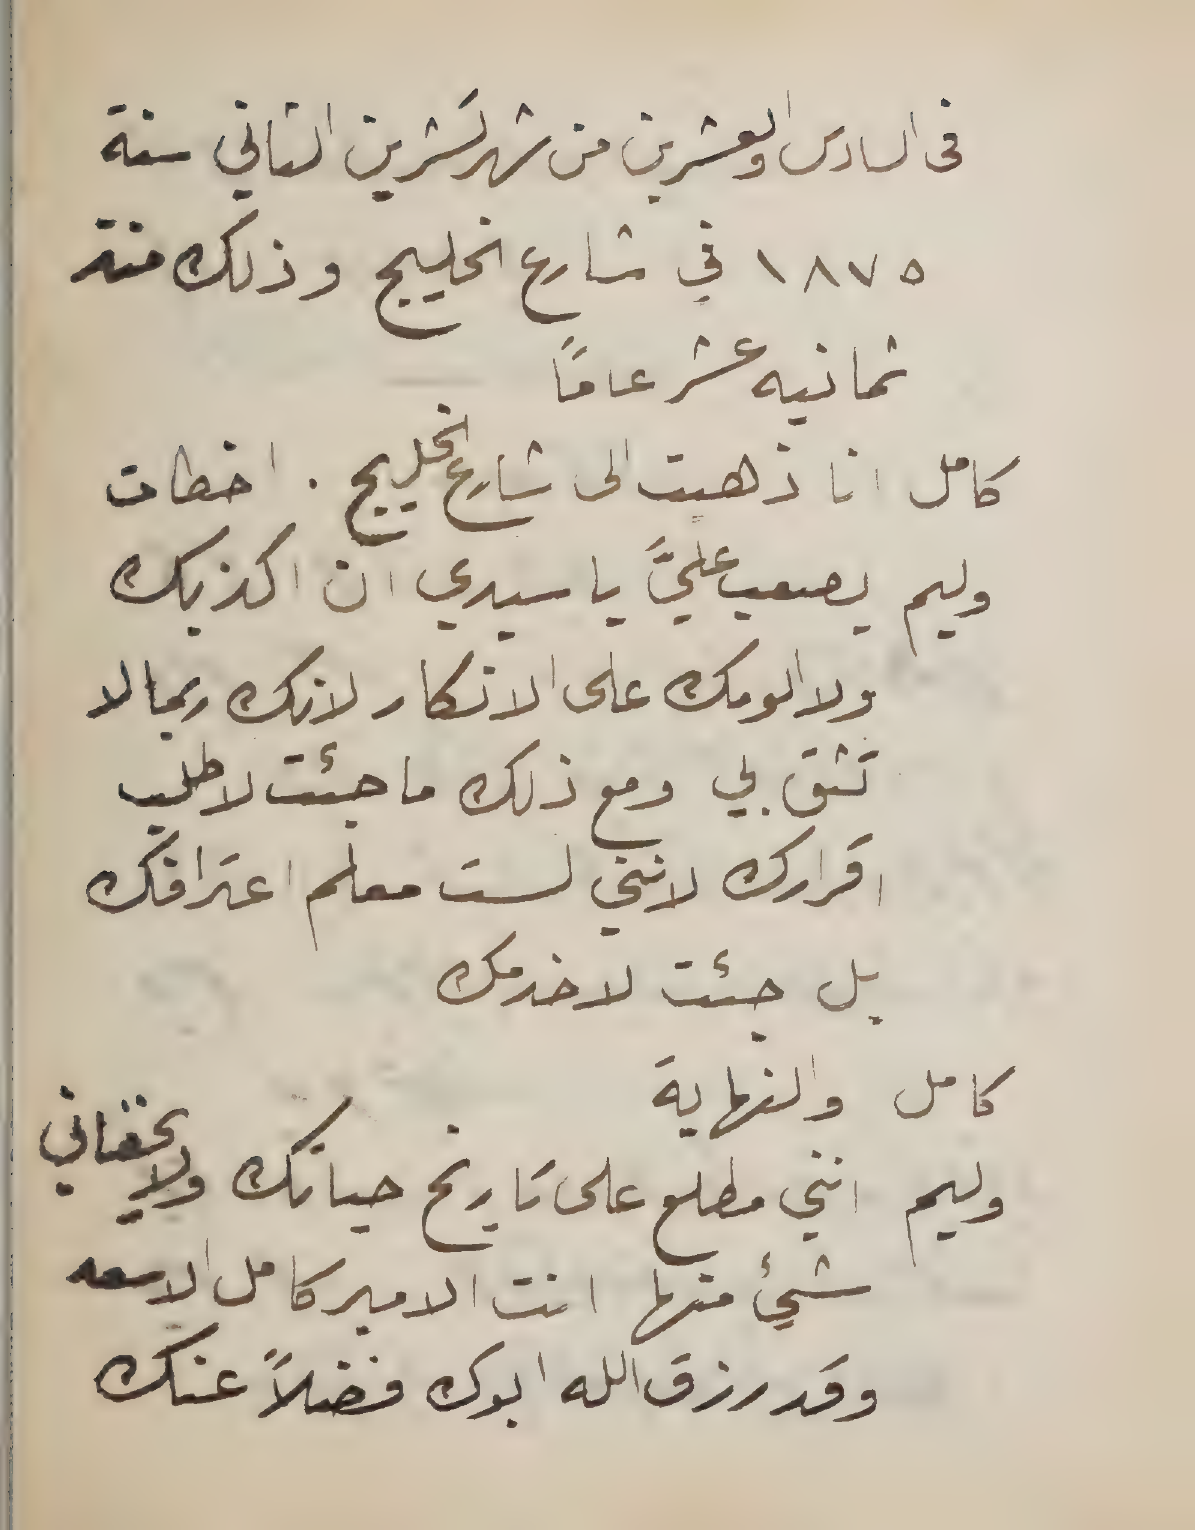 في السادس والعشرين من شهر تشرين الثاني سنة
١٨٧٥ في شارع الخليج وذلك منذ
ثمانيه عشر عامًا
كامل انا ذهبت الى شارع الخليج . اخطات
وليم يصعب عليَّ يا سيدي ان اكذبك
ولا الومك على الانكار لانك ربما لا
تثق بي ومع ذلك ما جئت لاطلب
اقرارك لانني لست معلم اعترافك
بل جئت لاخدمك
كامل والنهاية
وليم انني مطلع على تاريخ حياتك ولا يخفاني
شيئ منها انت الامير كامل الاسعد
وقد رزق الله ابوك فضلاً عنك